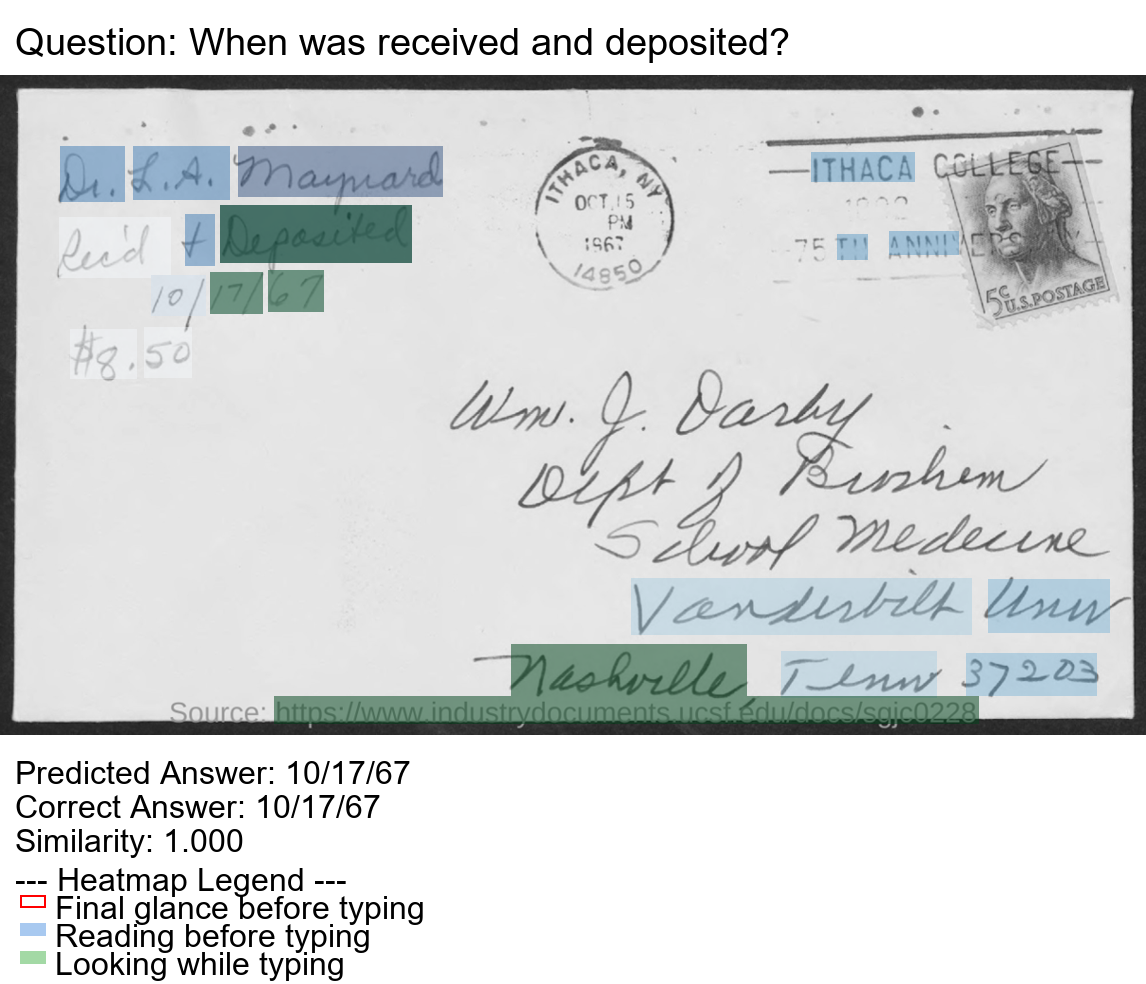 Question: When was received and deposited?
Dr. L.A. Maynard
Rec'd + Deposited
10/17/67
$8.50
ITHACA, NY
OCT 15
PM
1967
14850
ITHACA COLLEGE
75 TH ANNIVERS
5c U.S. POSTAGE
Wm. J. Darby
Dept of Biochem
School Medecine
Vanderbilt Univ
Nashville, Tenn 37203
Source: https://www.industrydocuments.ucsf.edu/docs/sgjc0228
Predicted Answer: 10/17/67
Correct Answer: 10/17/67
Similarity: 1.000
--- Heatmap Legend ---
Final glance before typing
Reading before typing
Looking while typing